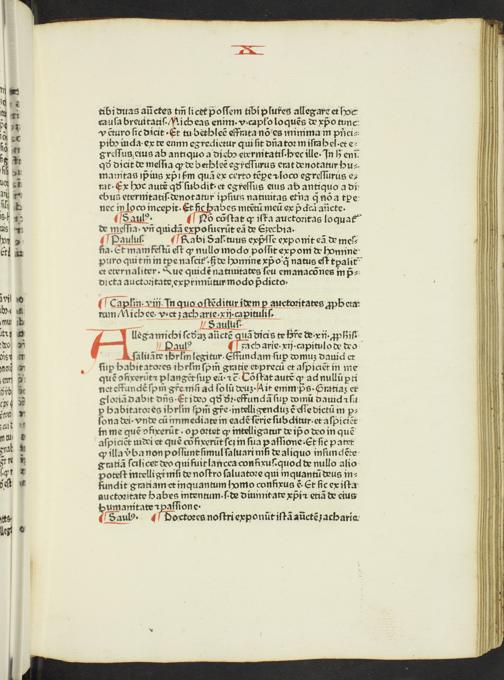 X
tibi duas auctẽs tm̃ licet possem tibi plures allegare et hoc
causa breuitatis. Micheas enim .v. capło loquẽs de xp̃o tunc
vẽturo sic dicit. Et tu bethleẽ effrata nõ es minima in prĩci-
pibus iuda. ex te enim egredietur qui sit dñator in israhel. et e-
gressus eius ab antiquo a diebus eternitatis. hec ille. In hoc eñ
qd̃ dicit de messia qp de bethleẽ egressurus erat denotatur hu-
manitas ipius xp̃i sm̃ quã ex certo tẽpore et loco egressurus e-
rat. Ex hoc autẽ qd̃ subdit. et egressus eius ab antiquo a di-
ebus eternitatis. denotatur ipsius natiuitas eterna q̃ nõ a tp̃e
nec in loco incepit. Et sic habes intentũ meũ ex p̃dicta aucte.
Saulus. Nõ cõstat qp ista auctoritas loquatur
de messia. vñ quidã exposuerũt eã de Ezechia.
Paulus. Rabi Salomon tuus expresse exponit eã de mes-
sia. Et manifestũ est qp nullo modo possit exponi de homine
puro qui tm̃ in tempore nascitur. sed de homine xp̃o qui natus est tp̃aliter
et eternaliter. Sue quidẽ natiuitates seu emanacões in p̃-
dicta auctoritate exprimũtur modo p̃dicto.
Caplm̃ .viii. In quo ostẽditur idem per auctoritates prophetarum
Michee .v. et zacharie .xij. capitulis.
Saulus.
Allega michi secũdam auctẽ quã dicis te habere de .xij. prophetis.
Paulus. zacharie .xij. capitulo de deo
saluãte ihrlm̃ legitur. Effundam super domum dauid et
sup habitatores ihrlm̃ sp̃m gratie et precũ et aspiciẽt in me
quẽ cõfixerũt et plangẽt sup eũ. et c̃. Cõstat autẽ qp ad nullũ pertinet
effundẽ sp̃m gr̃e nisi ad solũ deum. Ait enim ps. Gratiam et
gloriã dabit dñs. Et ideo qd̃ dr̃. effundã sup domũ dauid et su-
p habitatores ihrlm̃ sp̃m gr̃e. intelligendũ ẽ esse dictũ in per-
sona dei. vnde cũ immediate in eadẽ serie subditur. et aspiciẽt
in me quẽ cõfixerũt. oportet qp intelligatur de ipso deo in quẽ
aspiciẽt iudei et quẽ cõfixerũt sc. in sua passione. Et sic patet
qp illa verba non possunt simul saluari nisi de aliquo infundẽte
gratiã scilicet deo qui fuit lancea confixus. quod de nullo alio
potest intelligi nisi de nostro saluatore qui inquantũ deus in-
fundit gratiam et inquantum homo confixus ẽ. Et sic ex ista
auctoritate habes intentum. s. de diuinitate xp̃i et etiã de eius
humanitate et passione.
Saulus. Doctores nostri exponũt istã auctẽ zacharie